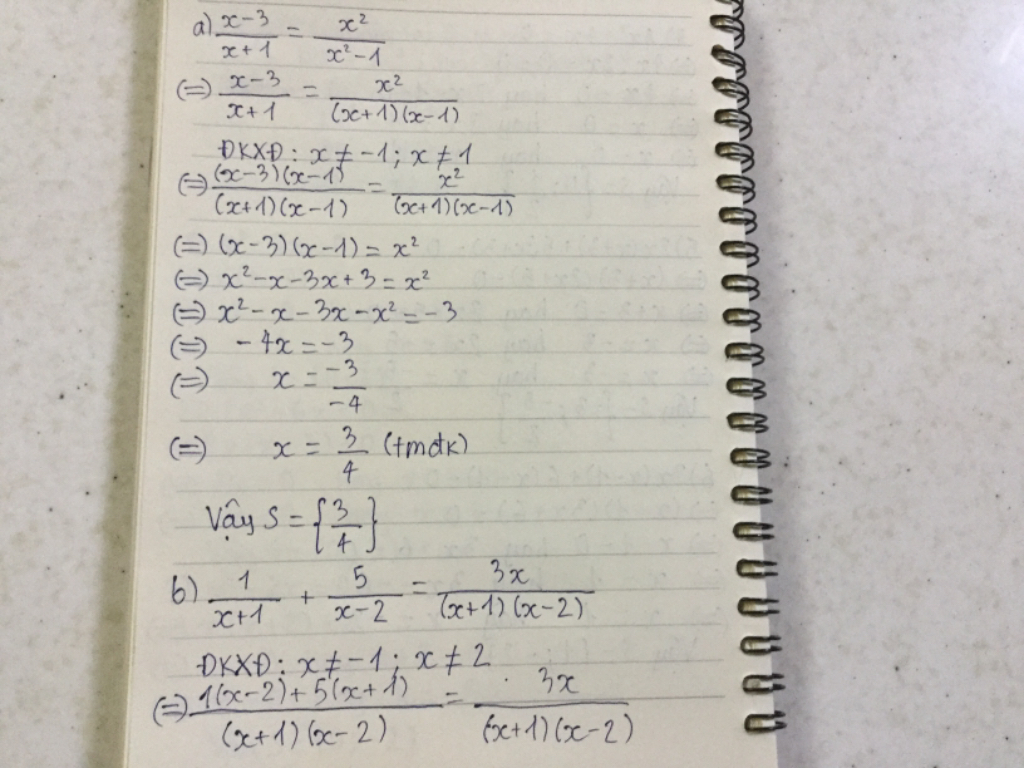 a) \frac{x-3}{x+1} = \frac{x²}{x²-1}
(=) \frac{x-3}{x+1} = \frac{x²}{(x+1)(x-1)}
ĐKXĐ: x ≠ -1; x ≠ 1
(=) \frac{(x-3)(x-1)}{(x+1)(x-1)} = \frac{x²}{(x+1)(x-1)}
(=) (x-3)(x-1) = x²
(=) x²-x-3x+3 = x²
(=) x²-x-3x-x² = -3
(=) -4x = -3
(=) x = \frac{-3}{-4}
(=) x = \frac{3}{4} (tmđk)
Vậy S = {\frac{3}{4}}
b) \frac{1}{x+1} + \frac{5}{x-2} = \frac{3x}{(x+1)(x-2)}
ĐKXĐ: x ≠ -1; x ≠ 2
(=) \frac{1(x-2)+5(x+1)}{(x+1)(x-2)} = \frac{3x}{(x+1)(x-2)}